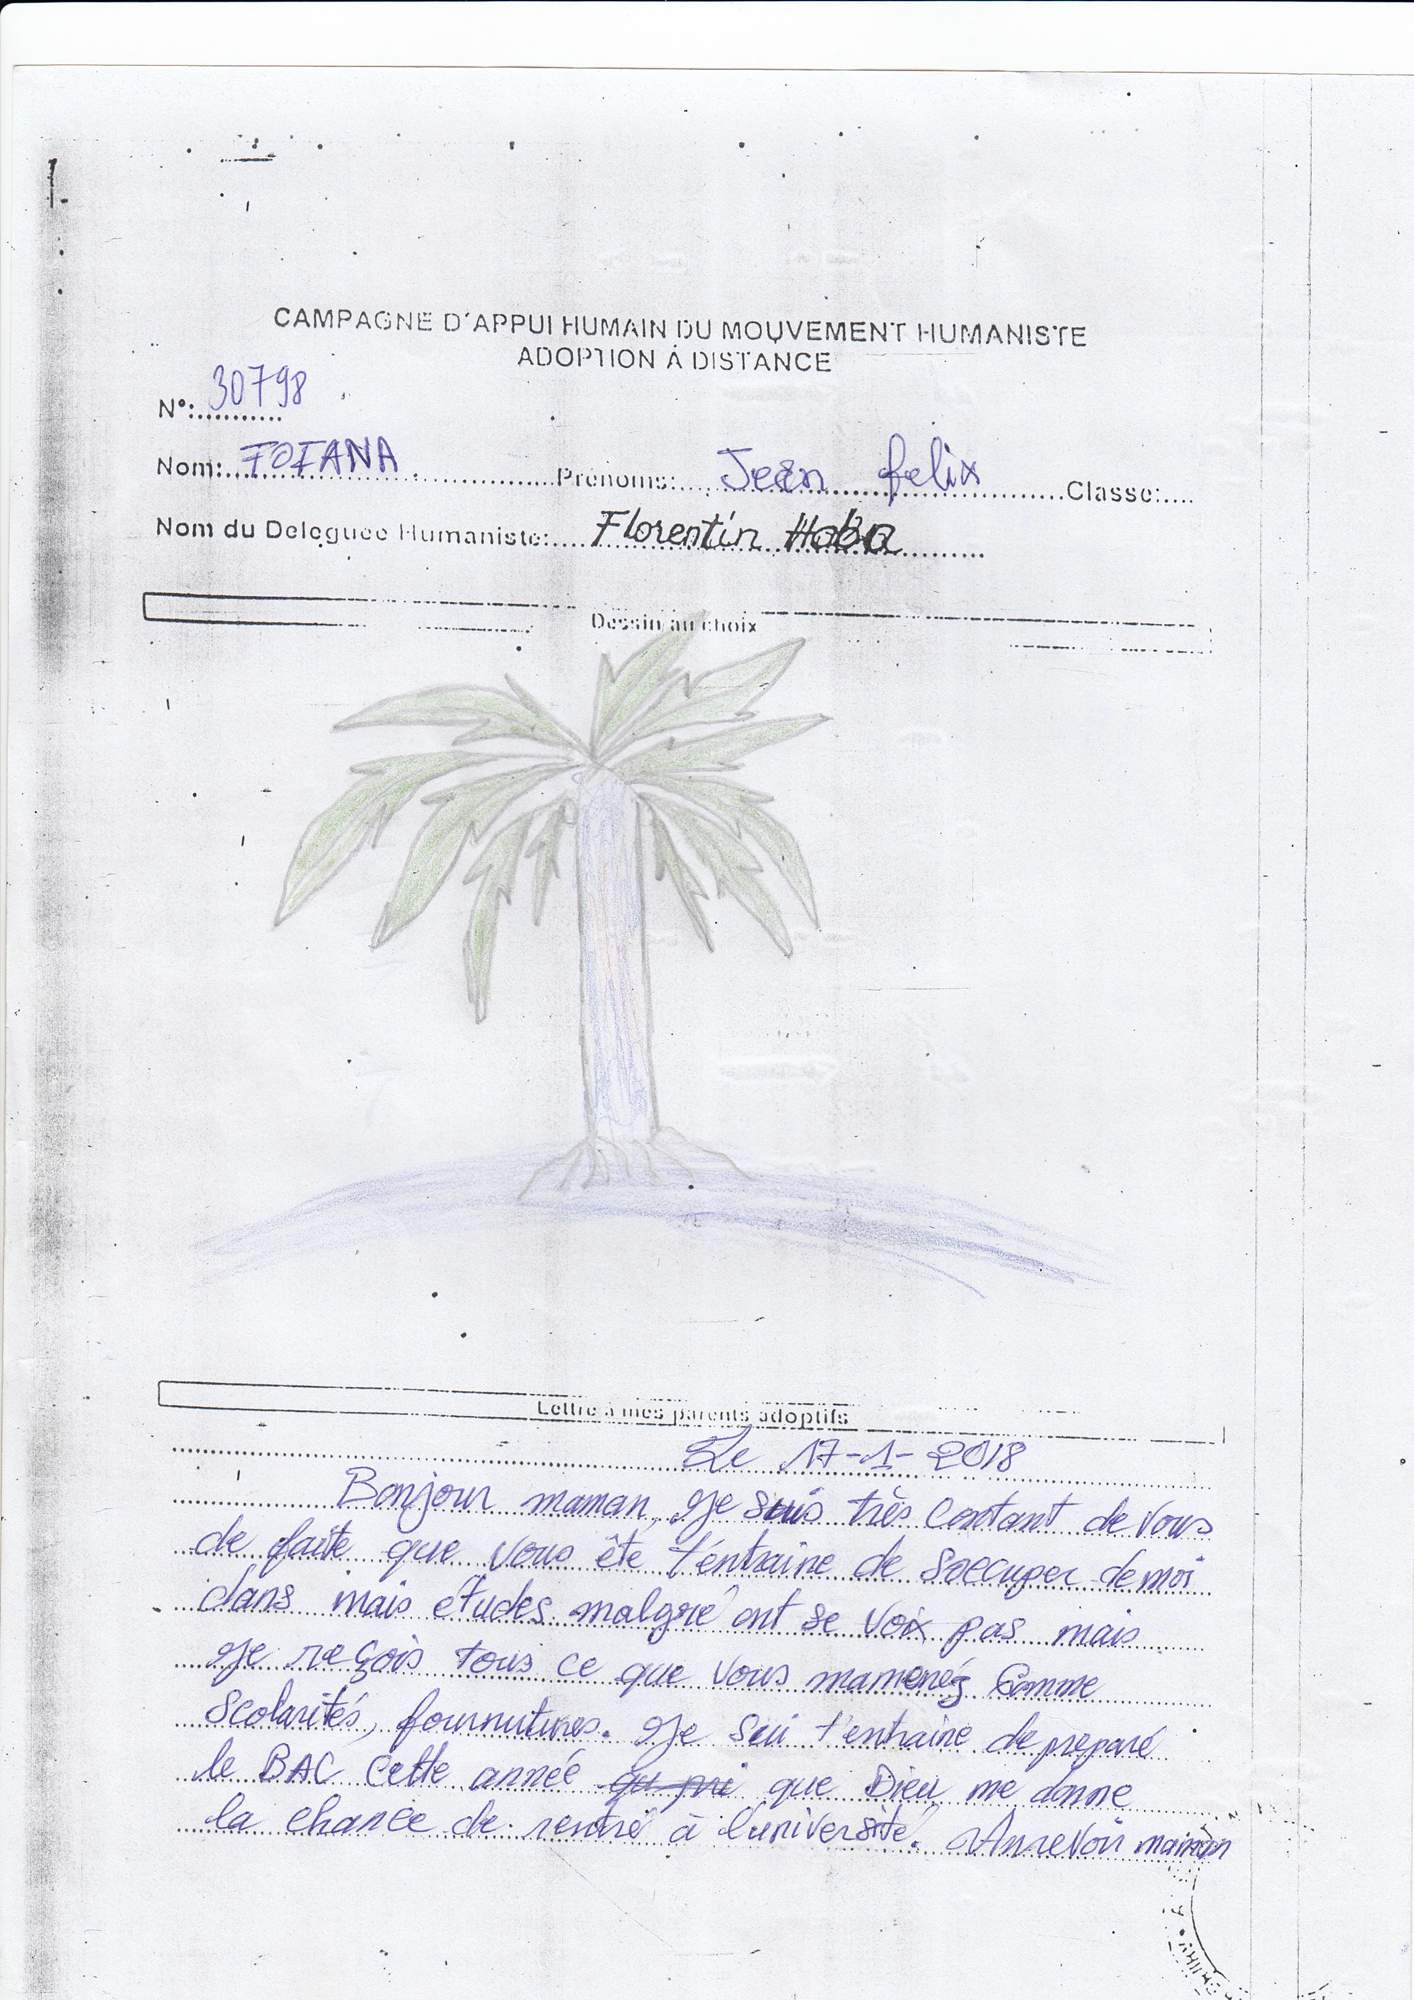 CAMPAGNE D'APPUI HUMAIN DU MOUVEMENT HUMANISTE
ADOPTION À DISTANCE
N°:..30798
Nom:..FOFANA Prénoms:..Jean felix Classe:....
Nom du Déléguée Humaniste:..Florentin Haba
Dessin au choix
Lettre à mes parents adoptifs
Le 17-1-2018
Bonjour maman, Je suis très contant de vous
de faite que vous ête t'entraine de soccuper de moi
dans mais études malgré ont se voix pas mais
Je reçois tous ce que vous mamenéz comme
Scolarités, fournutures. Je Sui t'entraine de preparé
le BAC cette année que Dieu me donne
la chance de rentré à l'université. Aurevoir maman